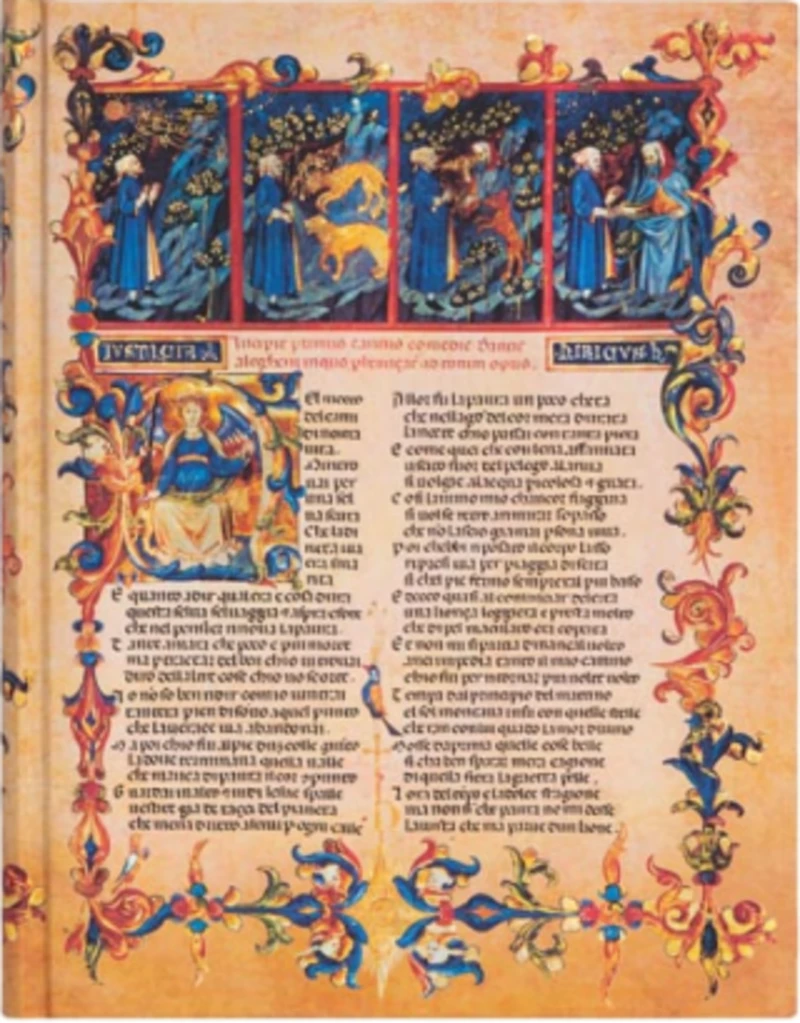 Incipit primus cantus comedie Dantis
El mezzo
del cami
di nostra
uita
mi per
una sel
ua scura
Che la di
ritta uia
era sma
rita
E quanto a dir qual era e cosa dura
questa selua seluaggia aspra e forte
che nel pensier rinoua la paura.
T ant e amara che poco e piu morte
ma per trattar del ben chio ui trouai
diro dellaltre cose chio
I o no so ben ridir comio uintrai
tantera pien di sono a quel punto
che la uerace uia abandonai.
M a poi chio fui al pie dun colle giunto
la doue terminaua quella ualle
che mauea di paura il cor
G uardai in alto e uidi le sue spalle
uestite gia de raggi del pianeta
che mena dritto altrui p ogni calle
A llor fu la paura un poco cheta
che nel lago del cor mera durata
la notte chio passai con tanta pieta
E come quei che con lena affannata
uscito fuor del pelago ala riua
si uolge alacqua e guata.
C osi lanimo mio chancor fuggiua
si uolse retro a rimirar lo passo
che no lascio gia mai psona uiua.
P oi posato il corpo lasso
ripresi uia per piaggia diserta
si chel pie fermo sempre era il piu basso
E t ecco quasi al cominciar delerta
una lonza leggiera e presta molto
che di pel maculato era coperta
E t non mi si partia dinanzi al uolto
anzi impedia tanto il mio camino
chio fui per ritornar piu uolte uolto
T emp era dal principio del matino
el sol montaua insu con quelle stelle
cheran con lui quado lamor diuino
M osse da prima quelle cose belle
si cha ben sperar mera cagione
di quella fiera la gaetta pelle.
L ora del tepo e la dolce stagione
ma non si che paura no mi desse
la uista che ma parue dun leone.